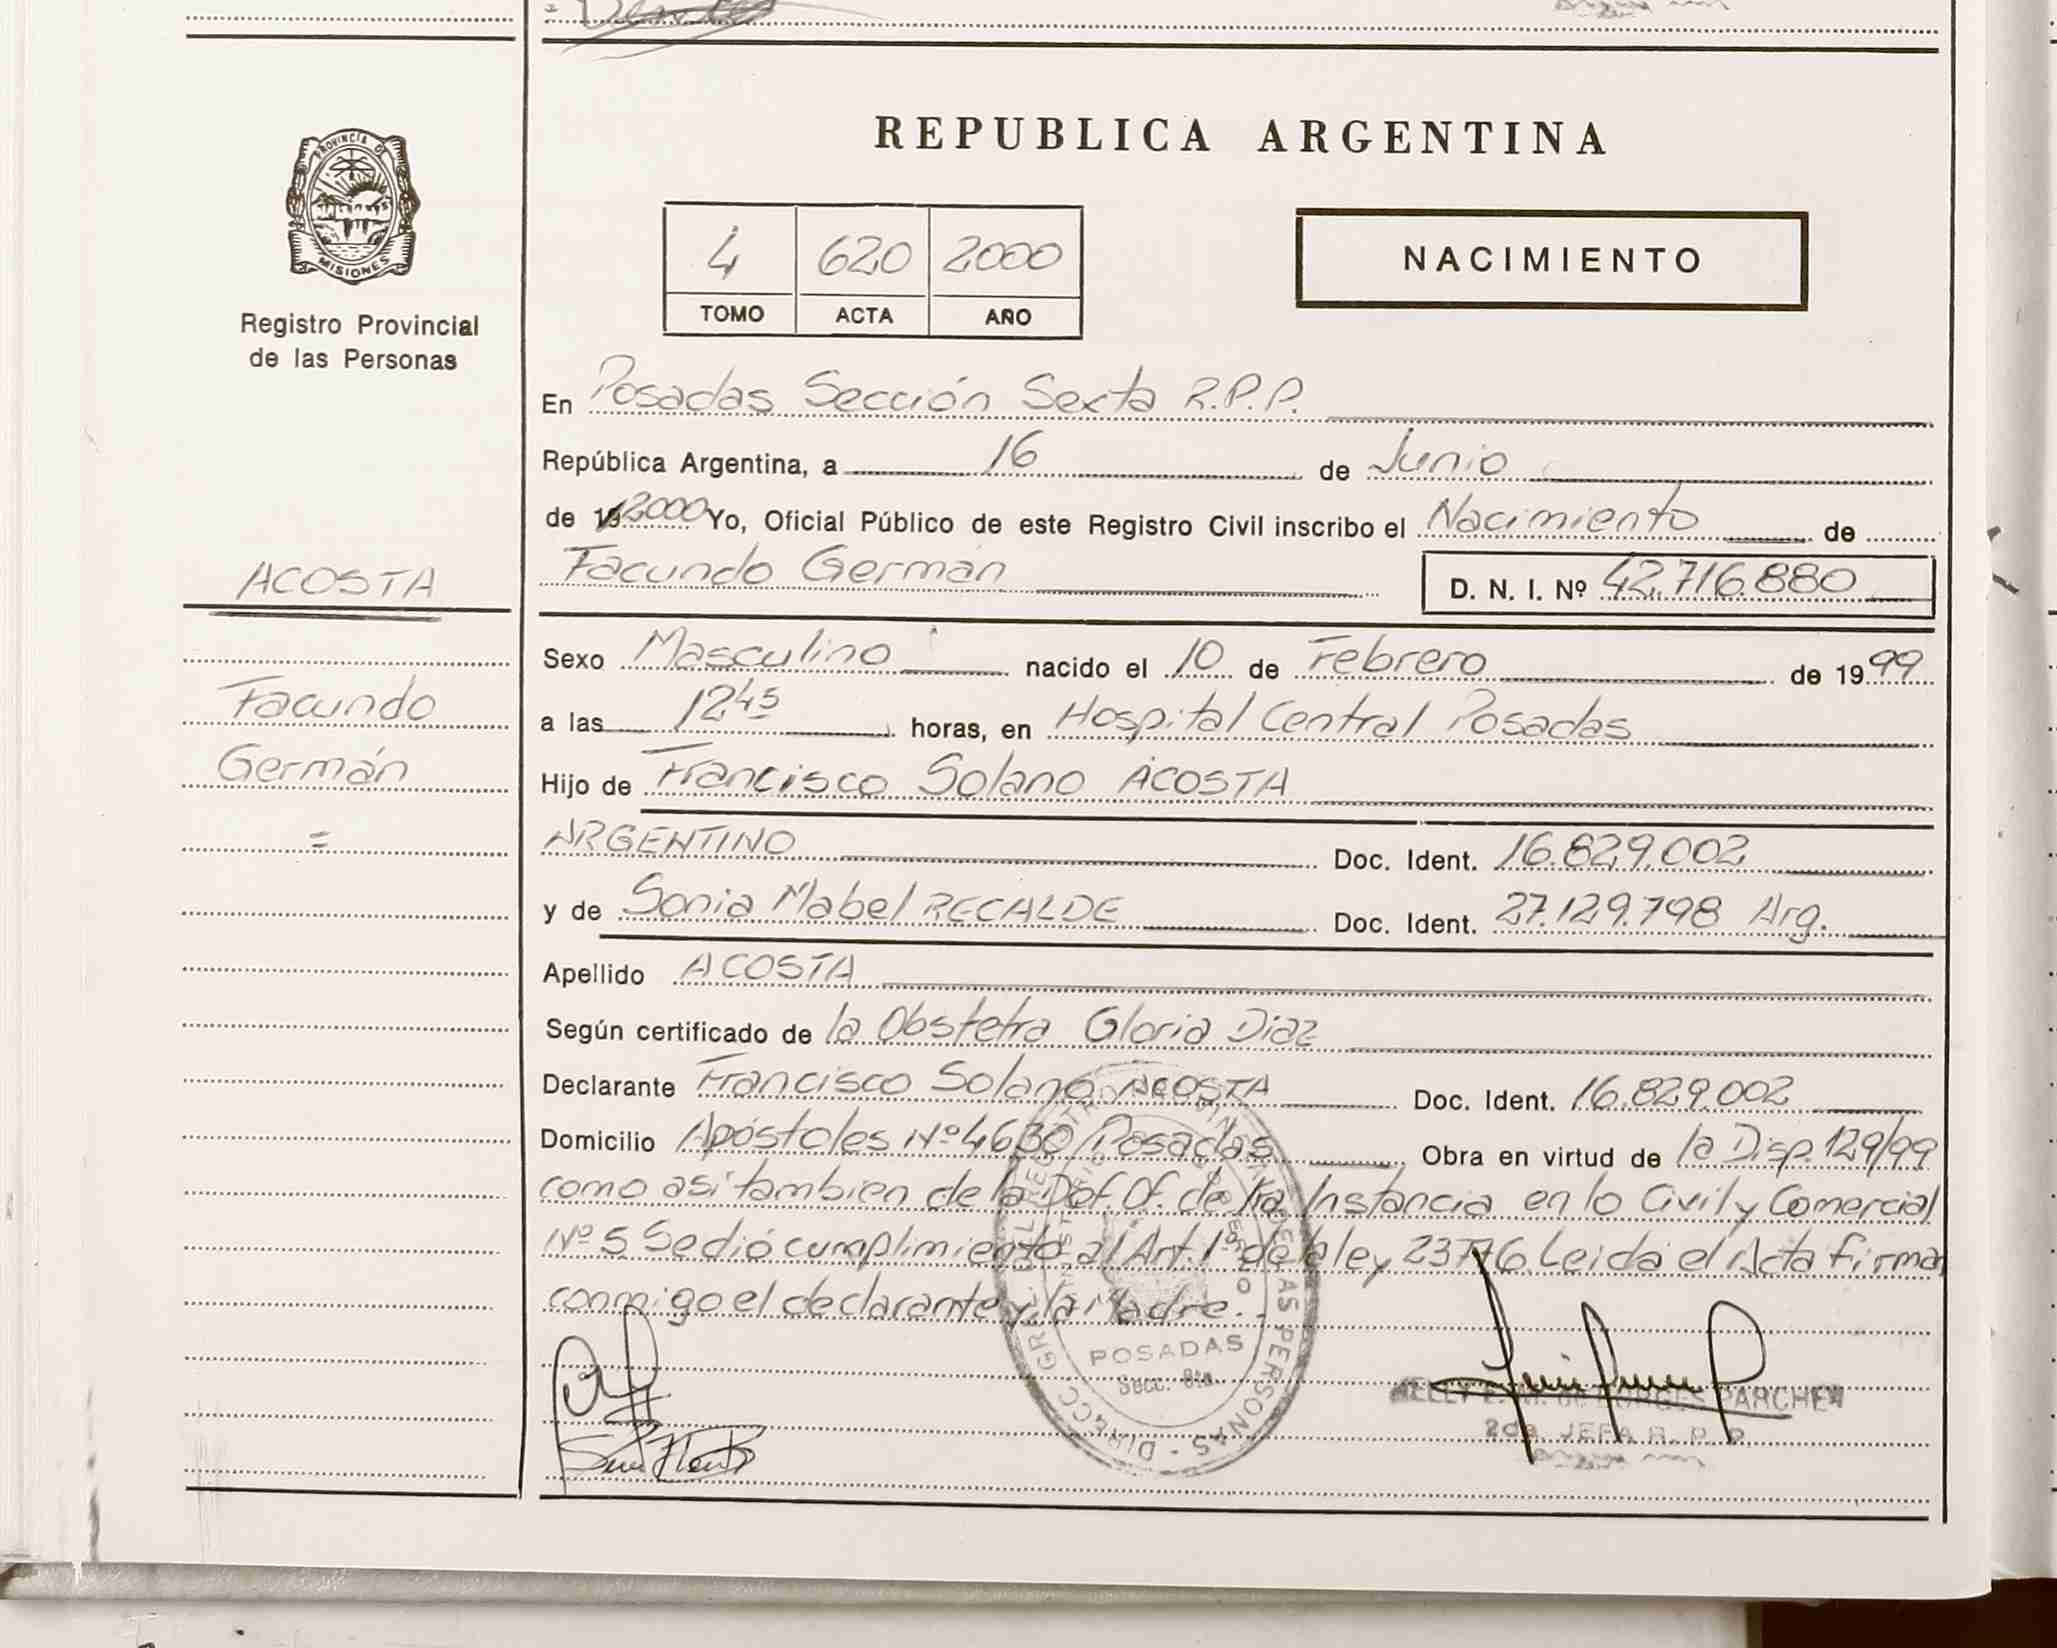 REPUBLICA ARGENTINA
PROVINCIA DE
MISIONES
Registro Provincial
de las Personas
4 620 2000
TOMO ACTA AÑO
NACIMIENTO
En Posadas Sección Sexta R.P.P.
República Argentina, a 16 de Junio
de 19 2000 Yo, Oficial Público de este Registro Civil inscribo el Nacimiento de
ACOSTA
Facundo Germán D. N. I. Nº 42.716.880
Sexo Masculino nacido el 10 de Febrero de 1999
Facundo
a las 12 45 horas, en Hospital Central Posadas
Germán
Hijo de Francisco Solano ACOSTA
=
ARGENTINO Doc. Ident. 16.829.002
y de Sonia Mabel RECALDE Doc. Ident. 27.129.798 Arg.
Apellido ACOSTA
Según certificado de la Obstetra Gloria Diaz
Declarante Francisco Solano ACOSTA Doc. Ident. 16.829.002
Domicilio Apóstoles Nº 4630 Posadas Obra en virtud de la Disp. 129/99
como asi tambien de la Def. Of. de 1ra Instancia en lo Civil y Comercial
Nº 5 Se dió cumplimiento al Art. 1º de la ley 23776. Leida el Acta firman
conmigo el declarante y la Madre.
POSADAS
Secc. 6ta.
PARCHEN
2da. JEFA R. P. P.